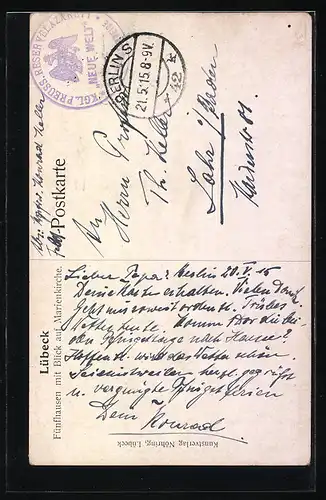 KGL. PREUSS. RESERVELAZARETT
"NEUE WELT"
BERLIN S
21.5.15.8-9V.
* 42 *
Postkarte
Konrad Keller
An
Herrn Prof.
Th. Keller
Lahr i/Baden
Lübeck
Fünfhausen mit Blick auf Marienkirche.
Lieber Papa! Berlin 20.V.15
Deine Karte erhalten. Vielen Dank
Geht mir soweit ordentl. Trübes
Wetter heute. Kommt Dor die bei-
den Pfingsttage nach Hause?
Hoffentl. wird das Wetter schön
Sei einstweilen herzl. gegrüßt
u. vergnügte Pfingstferien
Dein Konrad
Kunstverlag Nöhring, Lübeck